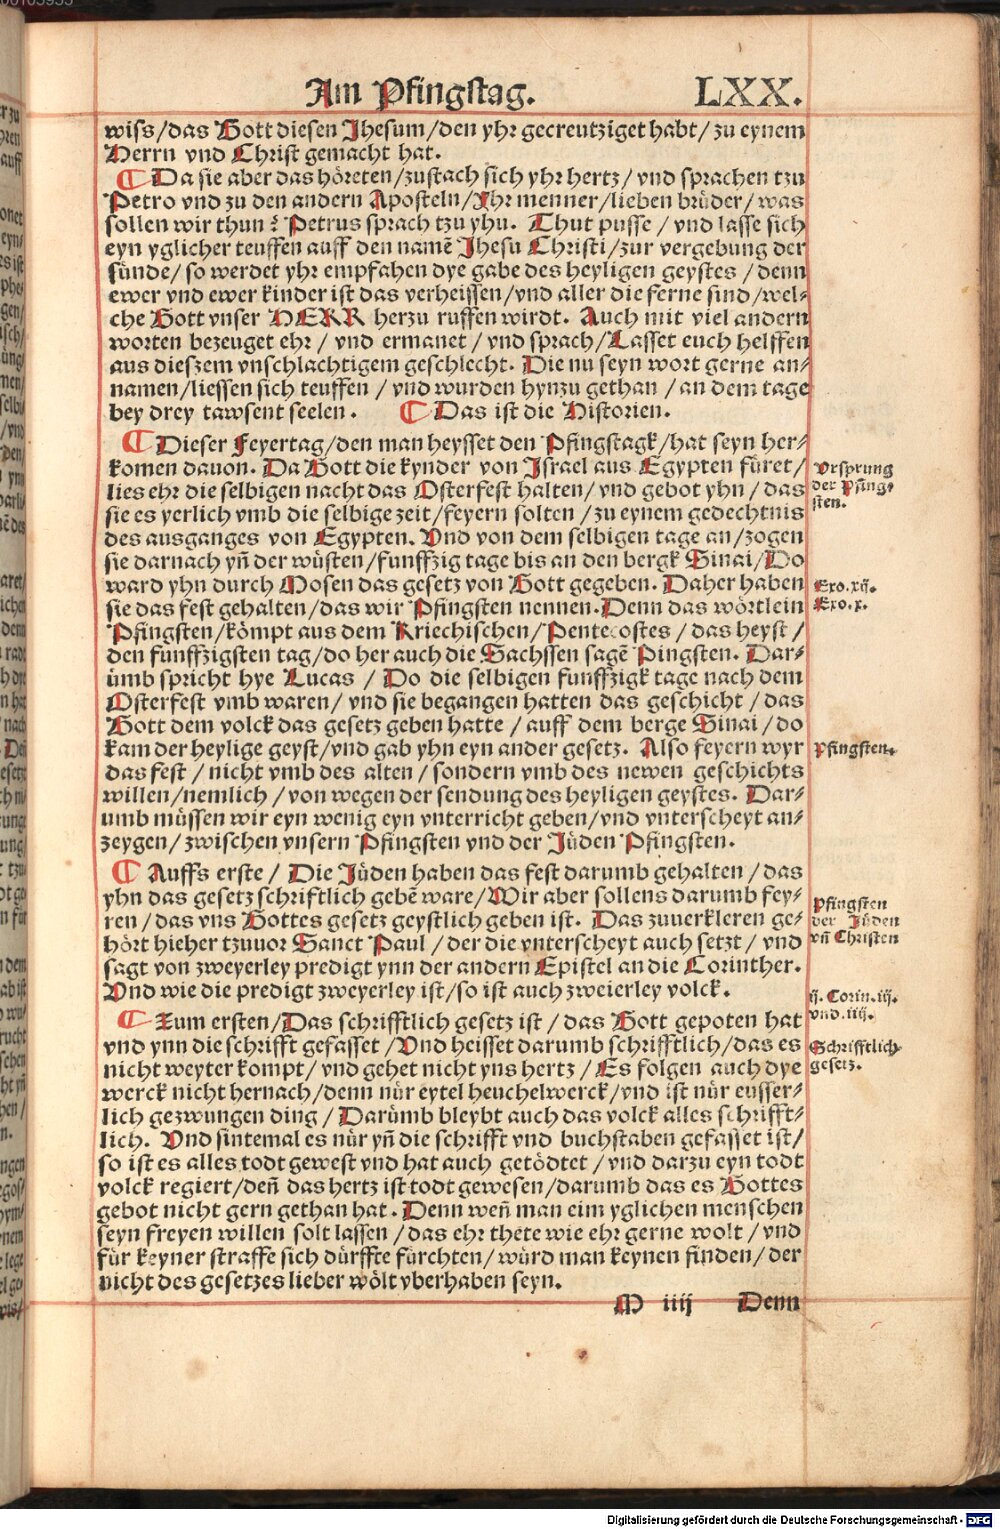 Am Pfingstag. LXX.
wiss/das Gott diesen Jhesum/den yhr gecreutziget habt/zu eynem
Herrn vnd Christ gemacht hat.
¶ Da sie aber das höreten/zustach sich yhr hertz/vnd sprachen tzu
Petro vnd zu den andern Aposteln/Jhr menner/lieben brüder/was
sollen wir thun? Petrus sprach tzu yhn. Thut pusse/vnd lasse sich
eyn yglicher teuffen auff den namē Jhesu Christi/zur vergebung der
sünde/so werdet yhr empfahen dye gabe des heyligen geystes/denn
ewer vnd ewer kinder ist das verheissen/vnd aller die ferne sind/wel-
che Gott vnser HERR herzu ruffen wirdt. Auch mit viel andern
worten bezeuget ehr/vnd ermanet/vnd sprach/Lasset euch helffen
aus dieszem vnschlachtigem geschlecht. Die nu seyn wort gerne an-
namen/liessen sich teuffen/vnd wurden hynzu gethan/an dem tage
bey drey tawsent seelen. ¶ Das ist die Historien.
¶ Dieser Feyertag/den man heysset den Pfingstagk/hat seyn her-
komen dauon. Da Gott die kynder von Israel aus Egypten füret/
lies ehr die selbigen nacht das Osterfest halten/vnd gebot yhn/das
sie es yerlich vmb die selbige zeit/feyern solten/zu eynem gedechtnis
des ausganges von Egypten. Vnd von dem selbigen tage an/zogen
sie darnach yn̄ der wüsten/funffzig tage bis an den bergk Sinai/Do
ward yhn durch Mosen das gesetz von Gott gegeben. Daher haben
sie das fest gehalten/das wir Pfingsten nennen. Denn das wörtlein
Pfingsten/kömpt aus dem Kriechischen/Pentecostes/das heyst/
den funffzigsten tag/do her auch die Sachssen sagē Pingsten. Dar-
ümb spricht hye Lucas/Do die selbigen funffzigk tage nach dem
Osterfest vmb waren/vnd sie begangen hatten das geschicht/das
Gott dem volck das gesetz geben hatte/auff dem berge Sinai/do
kam der heylige geyst/vnd gab yhn eyn ander gesetz. Also feyern wyr
das fest/nicht vmb des alten/sondern vmb des newen geschichts
willen/nemlich/von wegen der sendung des heyligen geystes. Dar-
umb müssen wir eyn wenig eyn vnterricht geben/vnd vnterscheyt an-
zeygen/zwischen vnsern Pfingsten vnd der Jüden Pfingsten.
¶ Auffs erste/Die Jüden haben das fest darumb gehalten/das
yhn das gesetz schriftlich gebē ware/Wir aber sollens darumb fey-
ren/das vns Gottes gesetz geystlich geben ist. Das zuuerkleren ge-
hört hieher tzuuor Sanct Paul/der die vnterscheyt auch setzt/vnd
sagt von zweyerley predigt ynn der andern Epistel an die Corinther.
Vnd wie die predigt zweyerley ist/so ist auch zweierley volck.
¶ Zum ersten/Das schrifftlich gesetz ist/das Gott gepoten hat
vnd ynn die schrifft gefasset/Vnd heisset darumb schrifftlich/das es
nicht weyter kompt/vnd gehet nicht yns hertz/Es folgen auch dye
werck nicht hernach/denn nür eytel heuchelwerck/vnd ist nür eusser-
lich gezwungen ding/Darümb bleybt auch das volck alles schrifft-
lich. Vnd sintemal es nür yn̄ die schrifft vnd buchstaben gefasset ist/
so ist es alles todt gewest vnd hat auch getödtet/vnd darzu eyn todt
volck regiert/den̄ das hertz ist todt gewesen/darumb das es Gottes
gebot nicht gern gethan hat. Denn wen̄ man eim yglichen menschen
seyn freyen willen solt lassen/das ehr thete wie ehr gerne wolt/vnd
für keyner straffe sich dürffte fürchten/würd man keynen finden/der
nicht des gesetzes lieber wölt vberhaben seyn.
M iiij Denn
Vrsprung
der Pfing-
sten.
Exo.xij.
Exo.x.
Pfingsten.
Pfingsten
der Jüden
vn̄ Christen
ij. Corin.iij.
vnd.iiij.
Schrifftlich
gesetz.
Digitalisierung gefördert durch die Deutsche Forschungsgemeinschaft - DFG